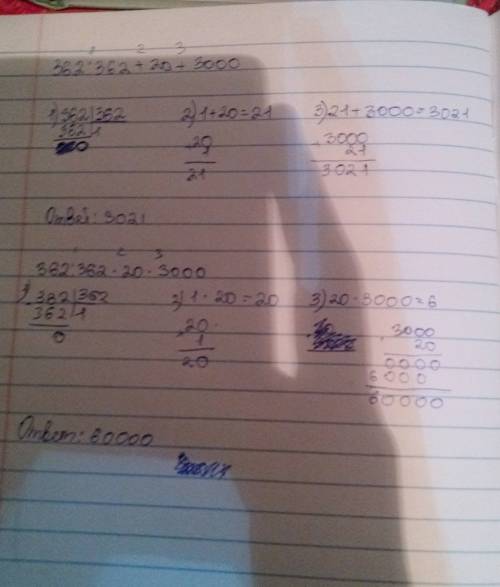 1 2 3
362:362+20+3000
1) 362|362 2) 1+20=21 3) 21+3000=3021
362|1 20 3000
0 1 21
21 3021
Ответ: 3021
1 2 3
362:362·20·3000
1) 362|362 2) 1·20=20 3) 20·3000=6
362|1 20 3000
0 1 20
20 0000
6000
60000
Ответ: 60000